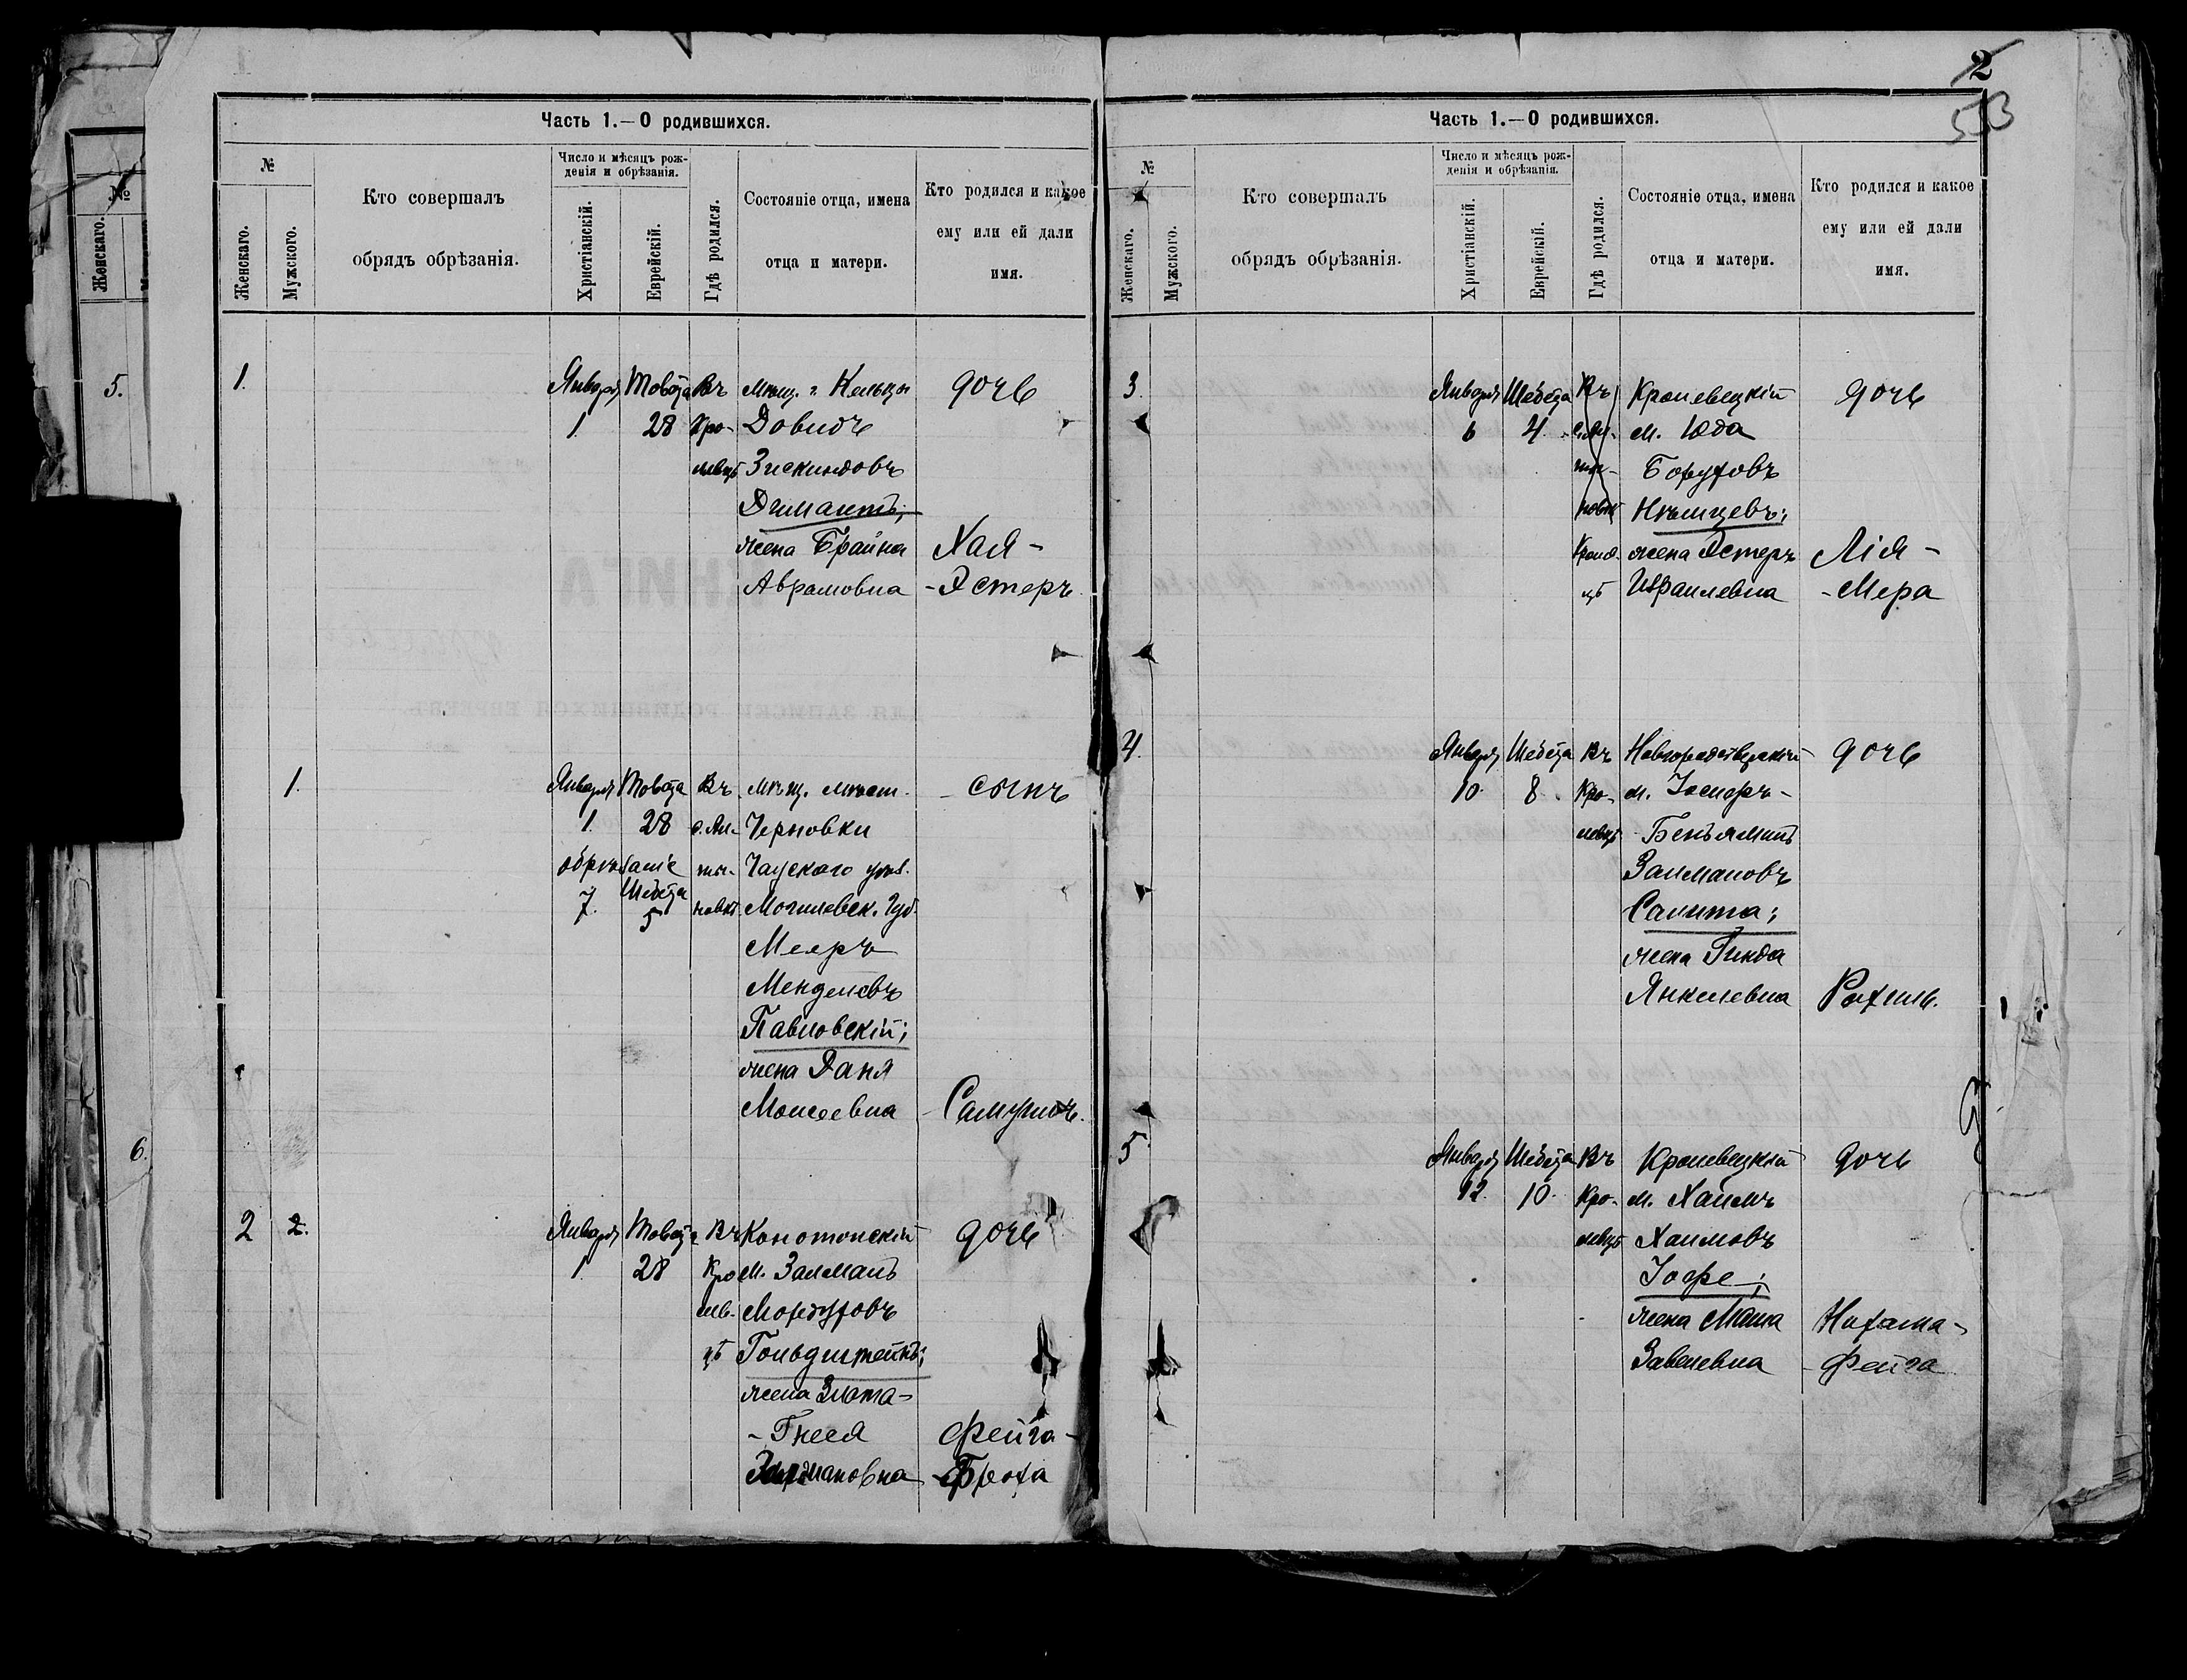 2
53
Часть 1.—О родившихся.
№
Женскаго.
Мужскаго.
Кто совершалъ
обрядъ обрѣзанія.
Число и мѣсяцъ рож-
денія и обрѣзанія.
Христіанскій.
Еврейскій.
Гдѣ родился.
Состояніе отца, имена
отца и матери.
Кто родился и какое
ему или ей дали
имя.
№
Женскаго.
5.
6.
1.
Января Товета Въ мѣщ. г. Кельцы дочь
1 28 Кро- Довидъ
левцѣ Зискиндовъ
Димантъ;
жена Брайна Хая-
Аврамовна -Эстеръ
1.
Января Товета Въ мѣщ. мѣст. сынъ
1 28 Черновки
обрѣзаніе Чаускаго уѣз.
7 Шевета 5 новкѣ Могилевск. Губ.
Мееръ
Менделевъ
Павловскій;
жена Ханя
Моисеевна Самуилъ.
2 2.
Января Товета Въ Конотопскій дочь
1 28 Кро м. Залманъ
лев- Мордуховъ
цѣ Гольдштейнъ;
жена Злота-
-Гнеся Фейга-
-Броха
Часть 1.—О родившихся.
№
Женскаго.
Мужскаго.
Кто совершалъ
обрядъ обрѣзанія.
Число и мѣсяцъ рож-
денія и обрѣзанія.
Христіанскій.
Еврейскій.
Гдѣ родился.
Состояніе отца, имена
отца и матери.
Кто родился и какое
ему или ей дали
имя.
3.
Января Шевета Въ Кролевецкій дочь
6 4 м. Юда
Боруховъ
новкѣ Нѣмцевъ;
жена Эстеръ Лія-
цѣ Израилевна -Мера
4.
Января Шевета Въ Новгородсѣверскій дочь
10 8 Кро- м. Іосифъ-
левцѣ -Беньяминъ
Залмановъ
Салита;
жена Гинда
Янкелевна Рахиль.
5
Января Шевета Въ Кролевецкій дочь
12 10 Кро- м. Хаимъ
левцѣ Хаимовъ
Іоффе;
жена Маша Нехама-
Завелевна -Фейга